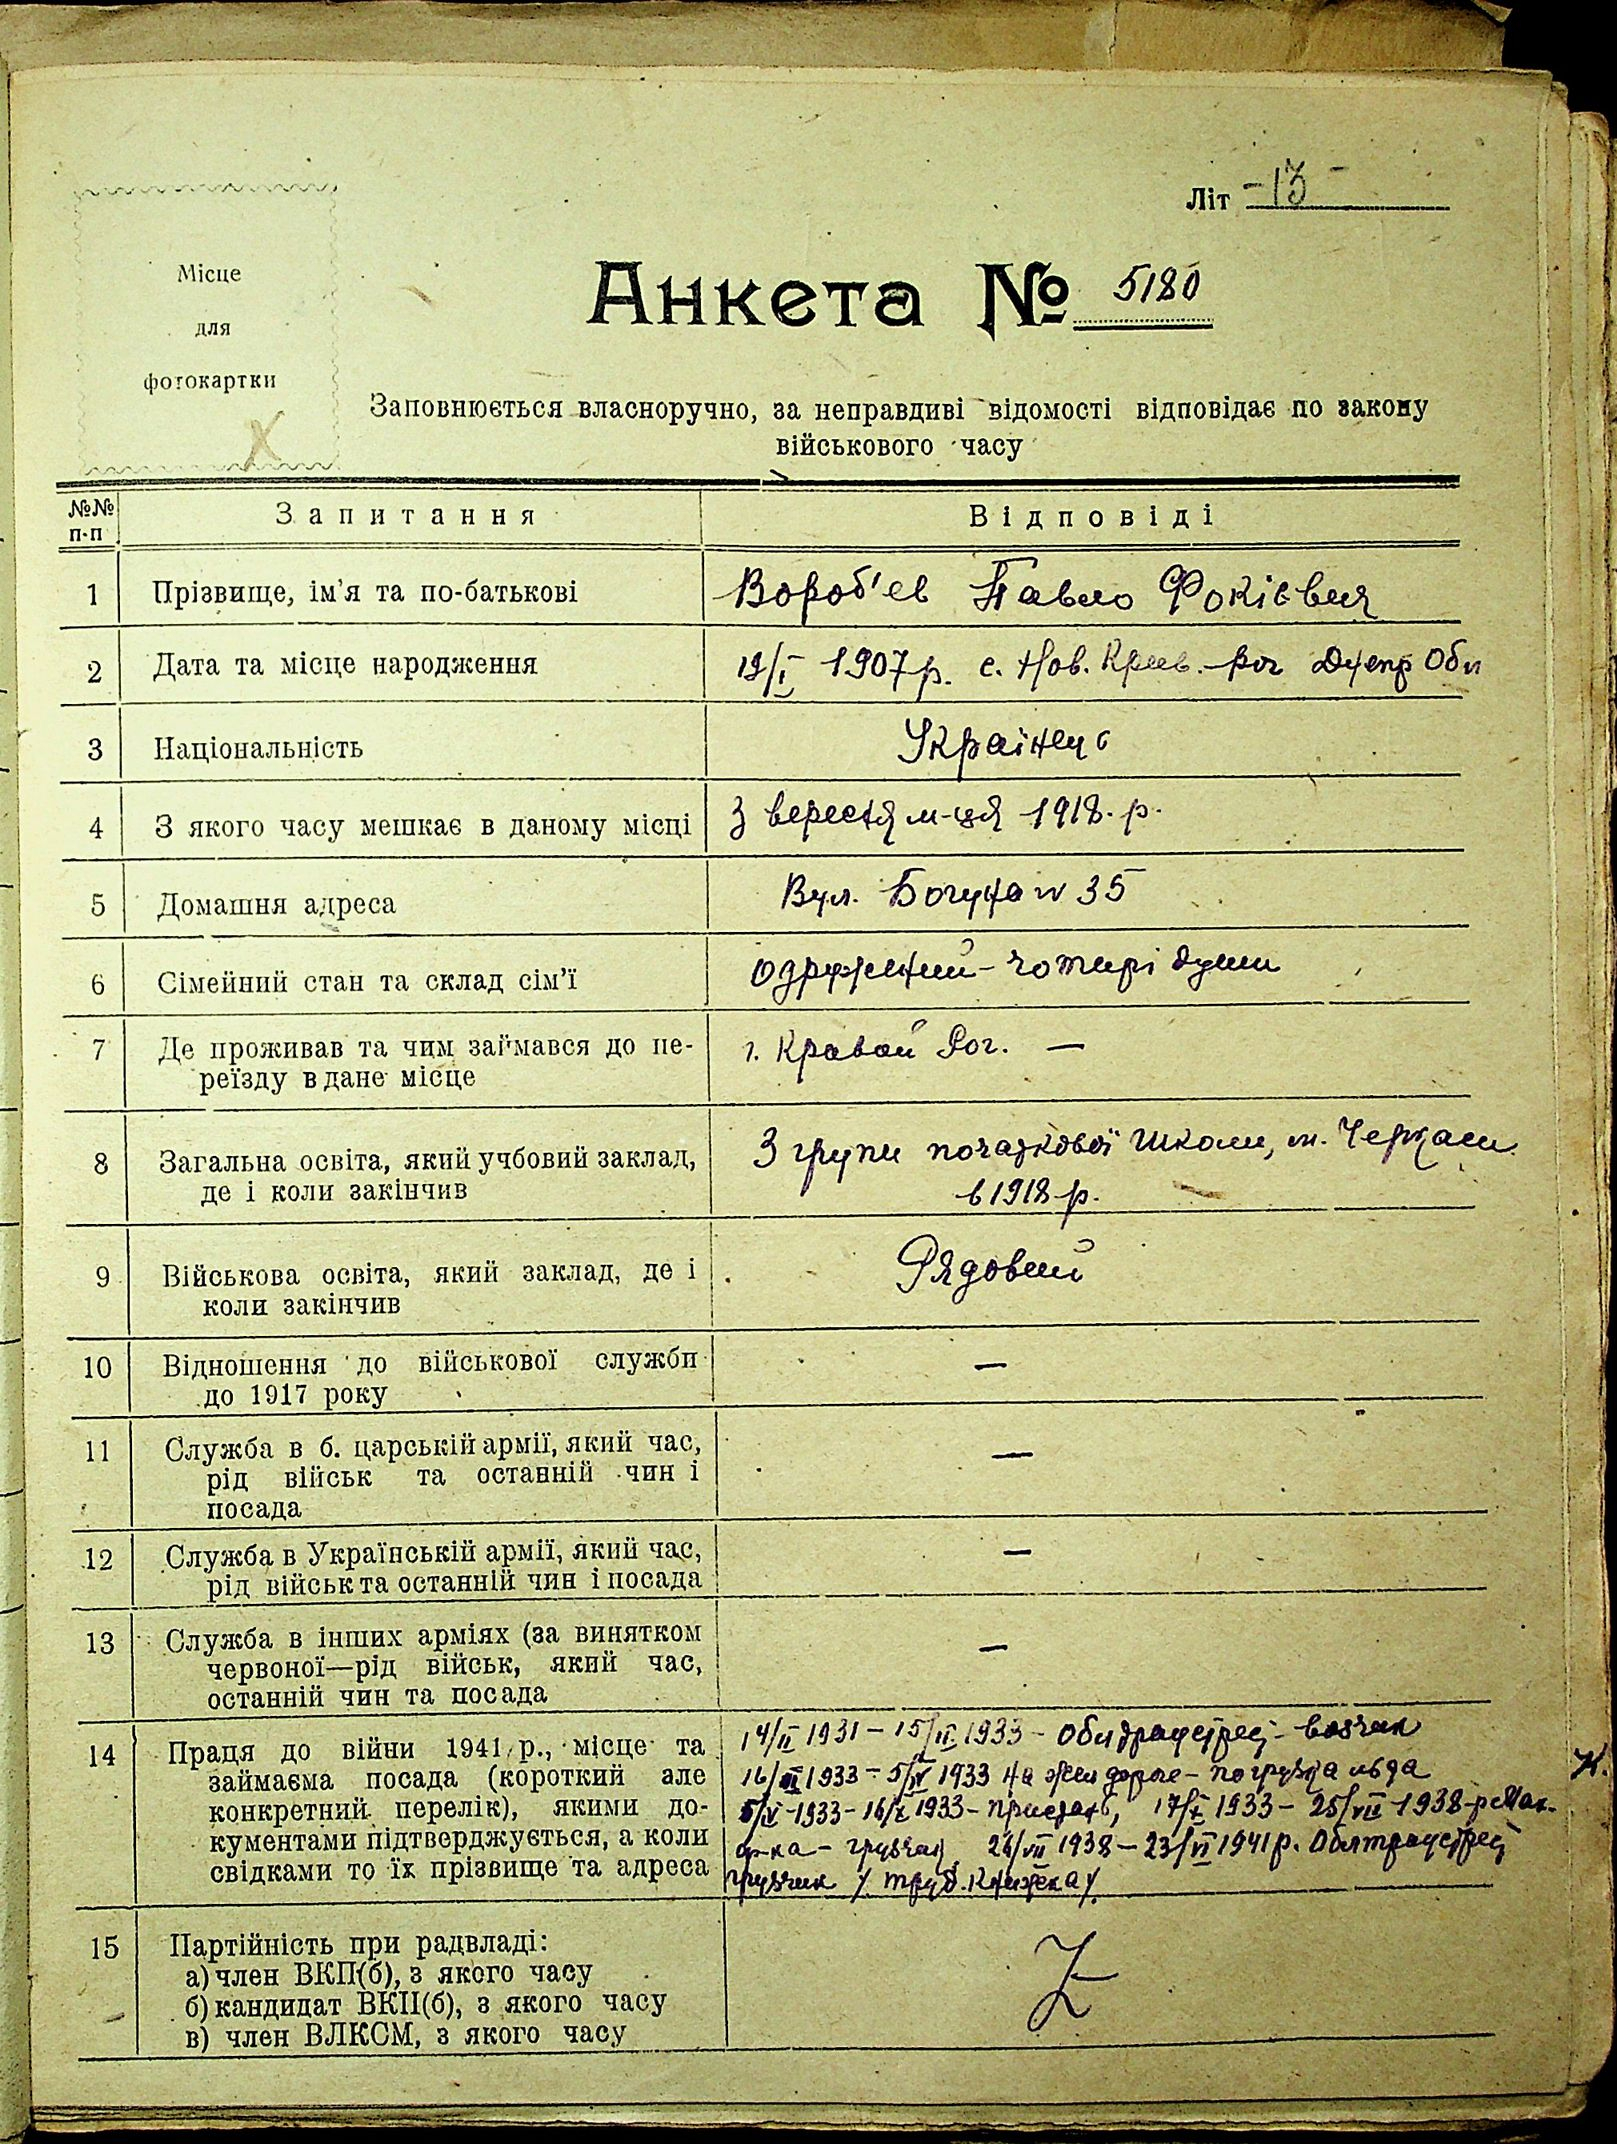 Літ -13-
Місце
для
фотокартки
Анкета № 5180
Заповнюється власноручно, за неправдиві відомості відповідає по закону
військового часу
№№ п-п Запитання Відповіді
1 Прізвище, ім'я та по-батькові Вороб'ев Павло Фокієвия
2 Дата та місце народження 19/I 1907 р. с. Нов. Крив. Рог Днепр Обл
3 Національність Українец
4 З якого часу мешкає в даному місці З вересня м-ця 1918. р.
5 Домашня адреса Вул. Богуна N 35
6 Сімейний стан та склад сім'ї Одружений - чотирі души
7 Де проживав та чим займався до пе- г. Кривой Рог. —
реїзду в дане місце
8 Загальна освіта, який учбовий заклад, 3 групи початкової школи, м. Черкаси
де і коли закінчив в 1918 р.
9 Військова освіта, який заклад, де і Рядовий
коли закінчив
10 Відношення до військової служби —
до 1917 року
11 Служба в б. царській армії, який час, —
рід військ та останній чин і
посада
12 Служба в Українській армії, який час, —
рід військ та останній чин і посада
13 Служба в інших арміях (за винятком —
червоної—рід військ, який час,
останній чин та посада
14 Праця до війни 1941 р., місце та 14/II 1931 - 15/II 1933 - возчик
займаєма посада (короткий але 1933 - 5/IV 1933 на погрузка льда
конкретний перелік), якими до- 1933 - 16/X 1933 - пристань, 17/X 1933 - 25/VII 1938
кументами підтверджується, а коли ф-ка - грузчик 26/VII 1938 - 23/VI 1941 р.
свідками то їх прізвище та адреса грузчик / труд. книжка /.
К.
15 Партійність при радвладі: Z
а) член ВКП(б), з якого часу
б) кандидат ВКП(б), з якого часу
в) член ВЛКСМ, з якого часу